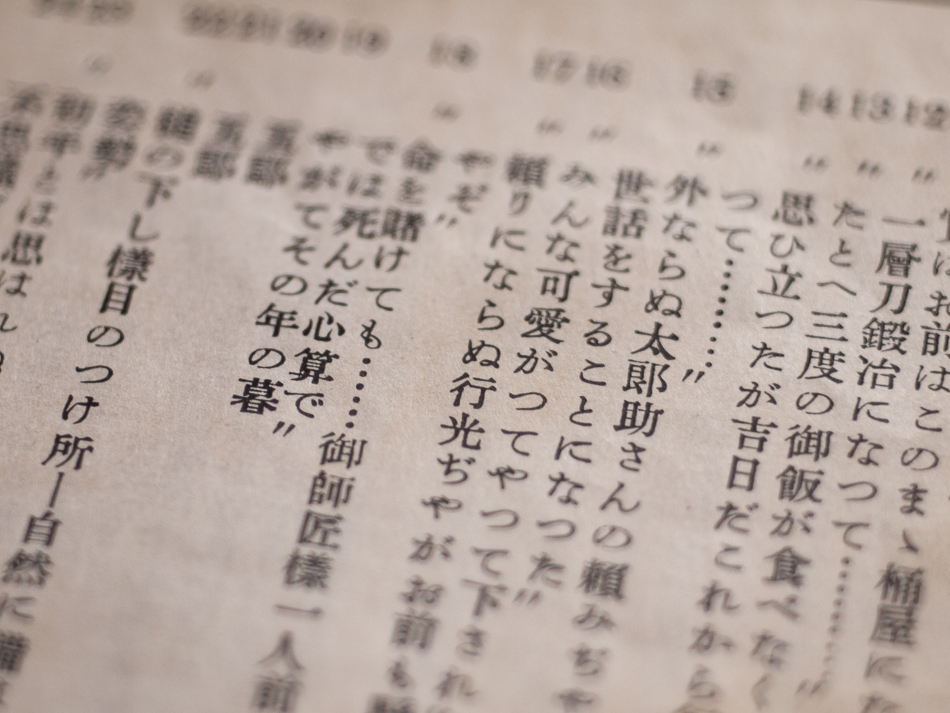 はお前はこのまゝ桶屋にな
一層刀鍛冶になつて………〃
たとへ三度の御飯が食べなく
思ひ立つたが吉日だこれから
つて………〃
外ならぬ太郎助さんの頼みぢや
世話をすることになつた〃
みんな可愛がつてやつて下され
頼りにならぬ行光ぢやがお前も
やぞ〃
命を賭けても……御師匠様一人前
では死んだ心算で〃
やがてその年の暮
の下し様目のつけ所―自然に備
姿勢〃
初手とは思はれぬ
不思議
12
13
14
15
16
17
18
19